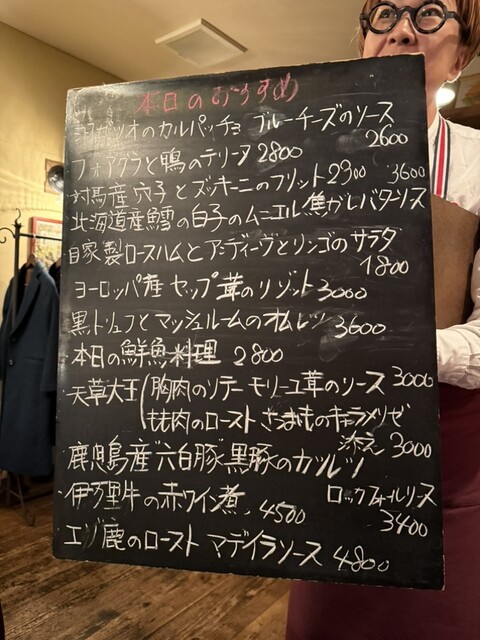 本日のおすすめ
のカルパッチョ ブルーチーズのソース
2600
フォアグラと鴨のテリーヌ 2800
対馬産穴子とズッキーニのフリット 2900
3600
北海道産鱈の白子のムニエル 焦がしバターソース
自家製ロースハムとアンディーヴとリンゴのサラダ
1800
ヨーロッパ産セップ茸のリゾット 3000
黒トリュフとマッシュルームのオムレツ 3600
本日の鮮魚料理 2800
天草大王 胸肉のソテー モリーユ茸のソース 3000
もも肉のロースト さつまいものキャラメリゼ
添え 3000
鹿児島産"六白豚"黒豚のカツレツ
ロックフォールソース
3400
伊万里牛の赤ワイン煮 4500
エゾ鹿のロースト マデイラソース 4800